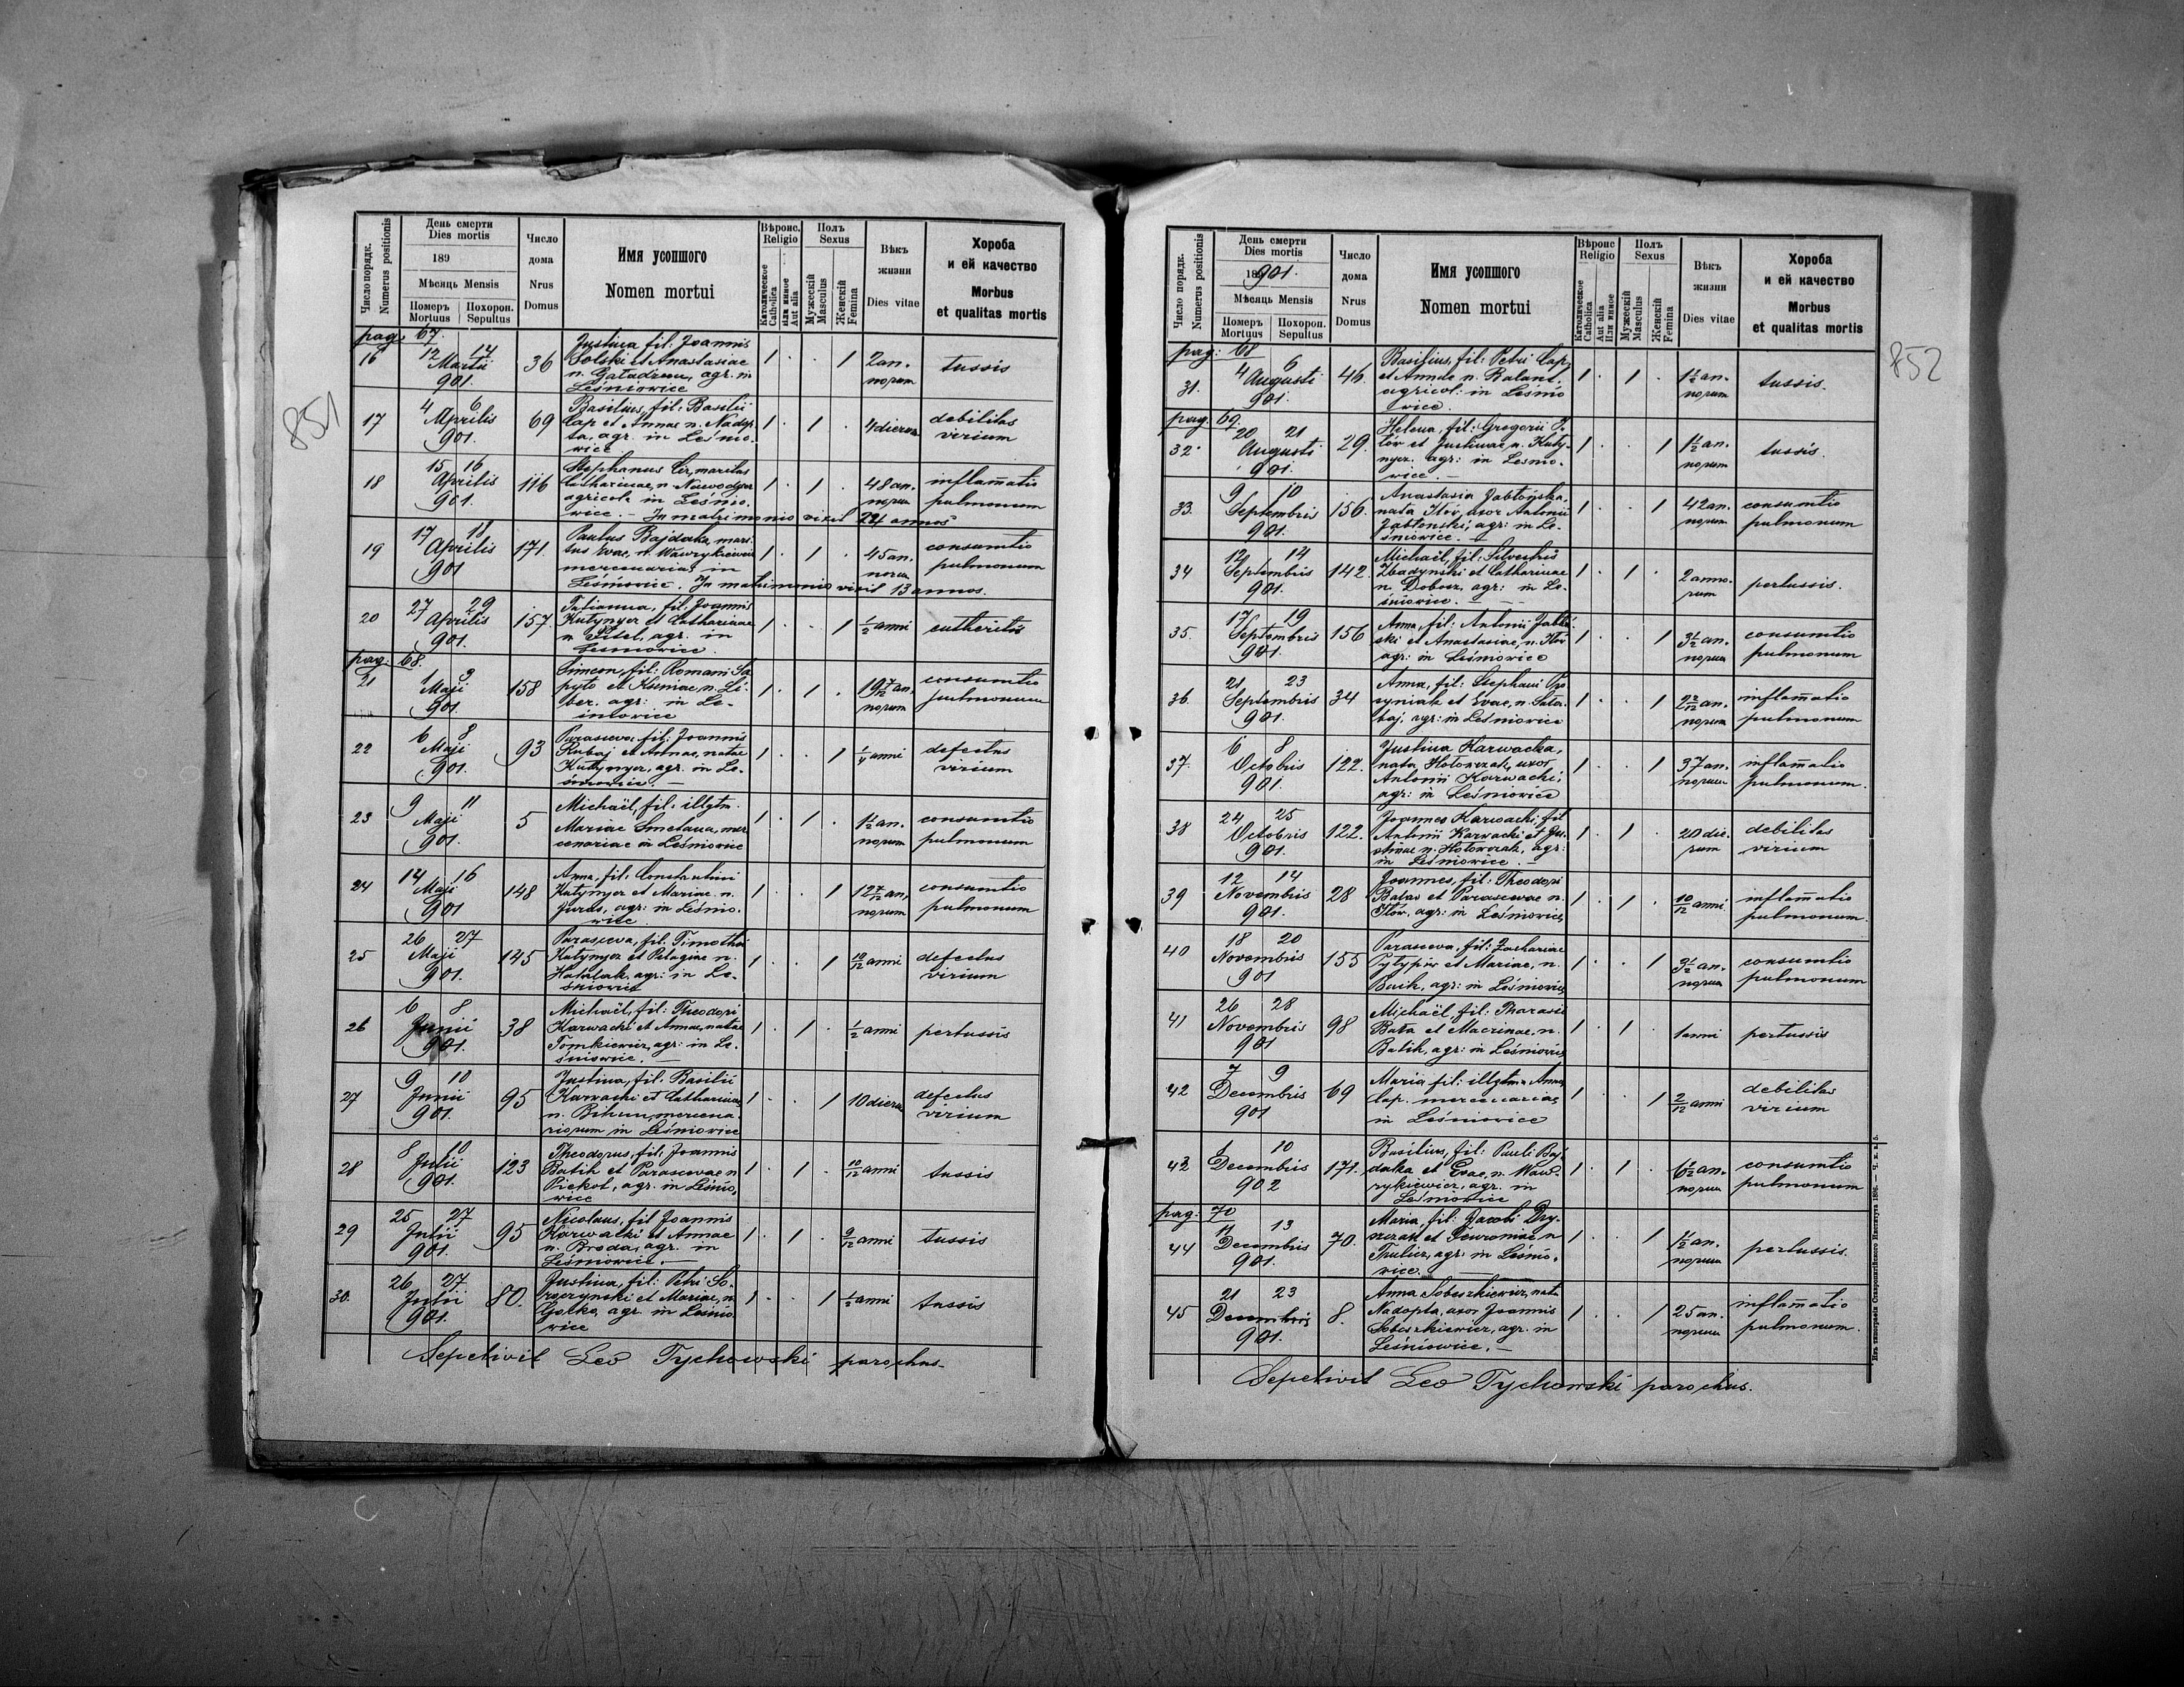 851
Число порядк.
Numerus positionis
День смерти
Dies mortis
189
Мѣсяць Mensis
Номеръ
Mortuus
Похорон.
Sepultus
Число
дома
Nrus
Domus
Имя усопшого
Nomen mortui
Вѣроис.
Religio
Католическое
Catholica
или иное
Aut alia
Полъ
Sexus
Мужескій
Masculus
Женскій
Femina
Вѣкъ
жизни
Dies vitae
Хороба
и ей качество
Morbus
et qualitas mortis
pag: 67.
16 12 14 Martii 901. 36
Justina fil: Joannis
Solski et Anastasiae
n. agr. in
Leśniowice
1 . . 1 2 an- norum tussis
17 4 6 Aprilis 901. 69
Basilius, fil: Basilii
Cap et Annae n. Nadop
ta, agr. in Leśnio-
wice
1 . 1 . 4 dierum debilitas virium
18 15 16 Aprilis 901. 116
Stephanus Cer, maritus
Catharinae, n
agricola in Leśnio-
wice. - In matrimonio vixit 24 annos
1 . 1 . 48 an- norum inflamatio pulmonum
19 17 18 Aprilis 901 171.
Paulus Bajdaka, mari-
tus Evae, n. Wawrykiewicz
mercenarius in
Leśniowice. In matrimonio vixit 13 annos.
1 . 1 . 45 an- norum consumtio pulmonum
20 27 29 Aprilis 901. 157.
Tatianna, fil. Joannis
Kutynycz et Catharinae
n. agr. in
Leśniowice.
1 . . 1 ½ anni
pag: 68.
21 1 3 Maji 901. 158
Simeon, fil: Romani Sa
pyto et n. Li-
ber. agr: in Le-
śniowice
1 . 1 . 19 7/12 an. norum consumtio pulmonum
22 6 8 Maji 901. 93
Parasceva, fil: Joannis
Kubaj et Annae, natae
Kutynycz, agr. in Le-
śniowice.
1 . . 1 ¼ anni defectus virium
23 9 11 Maji 901. 5
Michaël, fil: illgtm.
Mariae Smetana, mer
cenariae in Leśniowice
1 . 1 . 1½ an. norum consumtio pulmonum
24 14 16 Maji 901 148
Anna, fil: Constantini
Kutynycz et Mariae n.
Juras, agr: in Leśnio-
wice
1 . . 1 12 7/12 an, norum consumtio pulmonum
25 26 27 Maji 901. 145
Parasceva, fil. Timothei
Kutynycz et Pelagiae n.
Hatalak, agr: in Le-
śniowice
1 . . 1 10/12 anni defectus virium
26 6 8 Junii 901. 38
Michaël, fil: Theodori
Karwacki et Annae, natae
Tomkiewicz, agr: in Le-
śniowice. —
1 . 1 . ½ anni pertussis
27 9 10 Junii 901. 95
Justina, fil: Basilii
Karwacki et Catharinae
n. Bihun, mercena-
riorum in Leśniowice
1 . . 1 10 dierum defectus virium
28 8 10 Julii 901. 123
Theodorus, fil: Joannis
Batih et Parascevae n
Piekot, agr. in Leśnio,
wice
1 . 1 . 10/12 anni tussis
29 25 27 Julii 901. 95
Nicolaus, fil Joannis
Karwacki et Annae
n. Broda, agr. in
Leśniowice. —
1 . 1 . 9/12 anni tussis
30. 26 27 Julii 901. 80.
Justina, fil: Petri So-
roczynski et Mariae, n
Gotko, agr. in Leśnio
wice
1 . . 1 ½ anni tussis
Sepelivit Leo Tychowski parochus
852
Число порядк.
Numerus positionis
День смерти
Dies mortis
18901.
Мѣсяць Mensis
Номеръ
Mortuus
Похорон.
Sepultus
Число
дома
Nrus
Domus
Имя усопшого
Nomen mortui
Вѣроис
Religio
Католическое
Catholica
Aut alia
Или иное
Полъ
Sexus
Мужескій
Masculus
Женскій
Femina
Вѣкъ
жизни
Dies vitae
Хороба
и ей качество
Morbus
et qualitas mortis
pag: 68
31. 4 6 Augusti 901. 46.
Basilius, fil: Petri Cap,
et Annae n. Balant,
agricol: in Leśnio
wice.
1 . 1 . 1½ an- norum tussis.
pag: 69.
32. 20 21 Augusti 901. 29.
Helena, fil: Gregorii I-
tów et Justinae n. Kuty-
nycz. agr: in Leśnio-
wice. —
1 . . 1 1½ an- norum tussis.
33. 9 10 Septembris 901. 156.
Anastasia Jabłońska,
nata Itów, uxor Antonii
Jabłonski, agr: in Le-
śniowice. —
1 . . 1 42 an. norum consumtio pulmonum
34 12 14 Septembris 901. 142.
Michaël, fil: Silvestris
Zbadynski et Catharinae
n. Dobosz, agr: in Le-
śniowice. —
1 . 1 . 2 anno- rum pertussis.
35. 17 19 Septembris 901. 156
Anna, fil: Antonii Jabłoń-
ski et Anastasiae, n. Itów
agr: in Leśniowice
1 . . 1 3½ an- norum consumtio pulmonum
36. 21 23 Septembris 901. 34
Anna, fil: Stephani
et Evae, n.
agr: in Leśniowice
1 . . 1 2 2/12 an- norum inflamatio pulmonum
37. 6 8 Octobris 901. 122.
Justina Karwacka,
nata Hołowczak, uxor
Antonii Karwacki,
agr: in Leśniowice
1 . . 1 37 an. norum inflamatio pulmonum.
38 24 25 Octobris 901. 122.
Joannes Karwacki, fil
Antonii Karwacki et Ju-
stinae n. Hołowczak, agr:
in Leśniowice. —
1 . 1 . 20 die- rum debilitas virium
39 12 14 Novembris 901. 28
Joannes, fil: Theodori
et Parascevae n.
Itów, agr: in Leśniowice
1 . 1 . 10/12 anni. inflamatio pulmonum.
40 18 20 Novembris 901 155
Parasceva, fil: Zachariae
Pytypiw et Mariae, n.
agr: in Leśniowice
1 . . 1 3½ an. norum consumtio pulmonum
41 26 28 Novembris 901 98
Michaël, fil: Tharasii
Bata et Macrinae, n.
Batih, agr: in Leśniowice
1 . 1 . 1 anni pertussis
42 7 9 Decembris 901 69
Maria fil: illgtma Annae
Cap. mercenariae,
in Leśniowice
1 . . 1 2/12 anni debilitas virium
43 10 Decembris 902 171.
Basilius, fil: Pauli Baj
daka et Evae, n. Waw-
rykiewicz, agr. in
Leśniowice
1 . 1 . 6½ an- norum consumtio pulmonum
pag: 70
44 11 13 Decembris 901. 70.
Maria, fil: Jacobi Dry-
et Fevroniae n
agr: in Leśnio-
wice.
1 . . 1 1½ an. norum pertussis.
45 21 23 Decembris 901. 8.
Anna Sobeszkiewicz, nata
Nadopta, uxor Joannis
Sobeszkiewicz, agr. in
Leśniowice. —
1 . . 1 25 an. norum inflamatio pulmonum.
Sepelivit Leo Tychowski parochus.
Изъ типографіи Ставропигійского Института 1896. — Ч. к. в. 5.